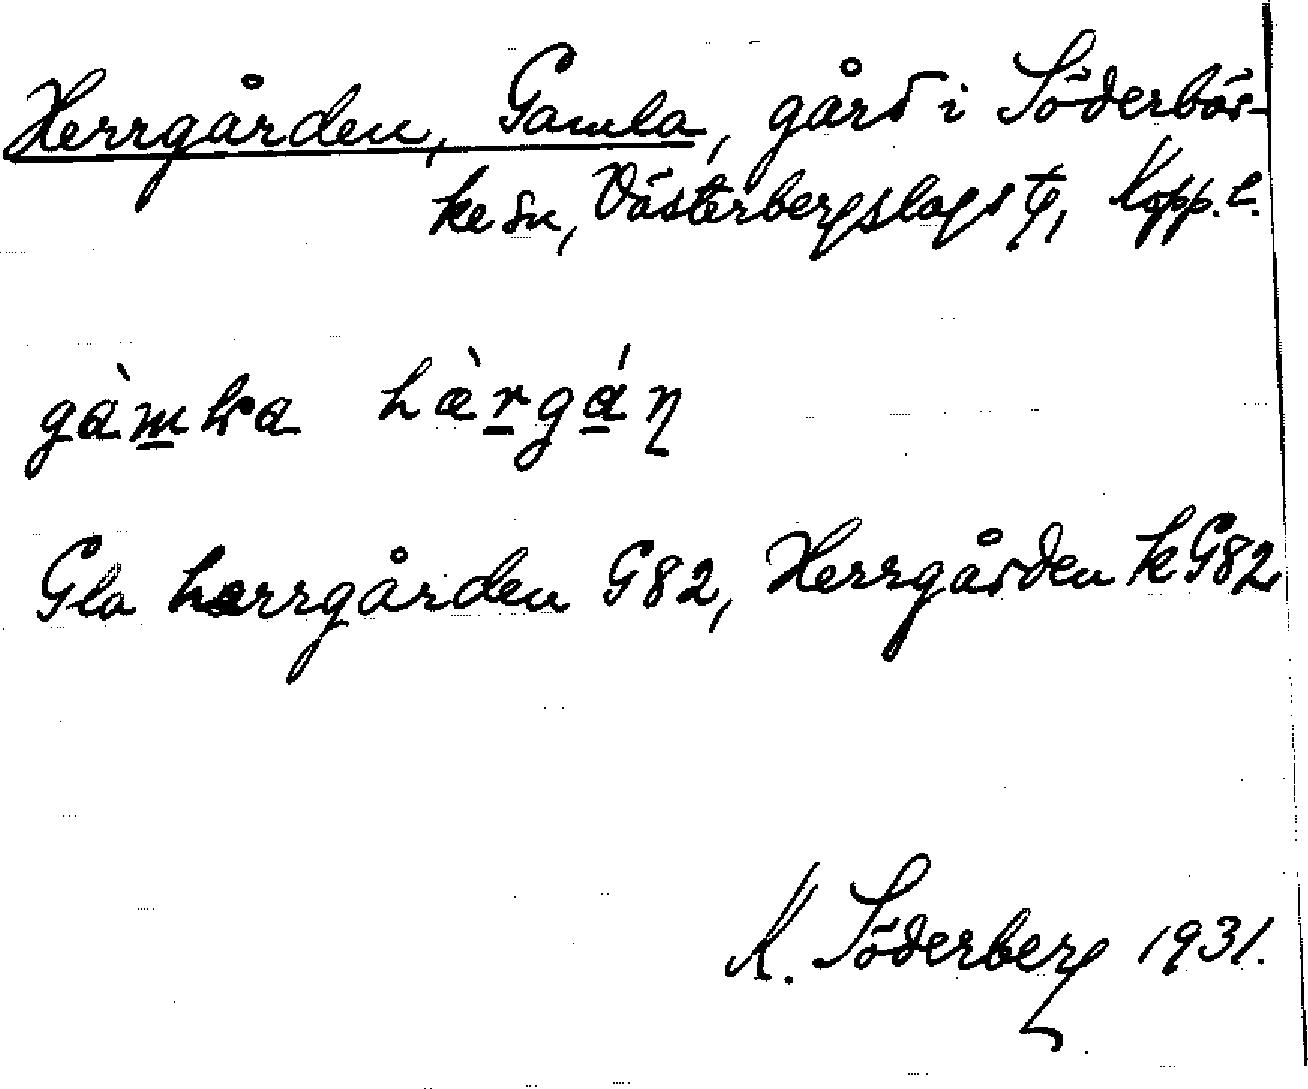 Herrgården, Gamla, gård i Söderbär-
ke sn, Västerbergslags tg, Kopp. l.
gàmɫra hàrgáɳ
Gla herrgården G82, Herrgården k G82
K. Söderberg 1931.